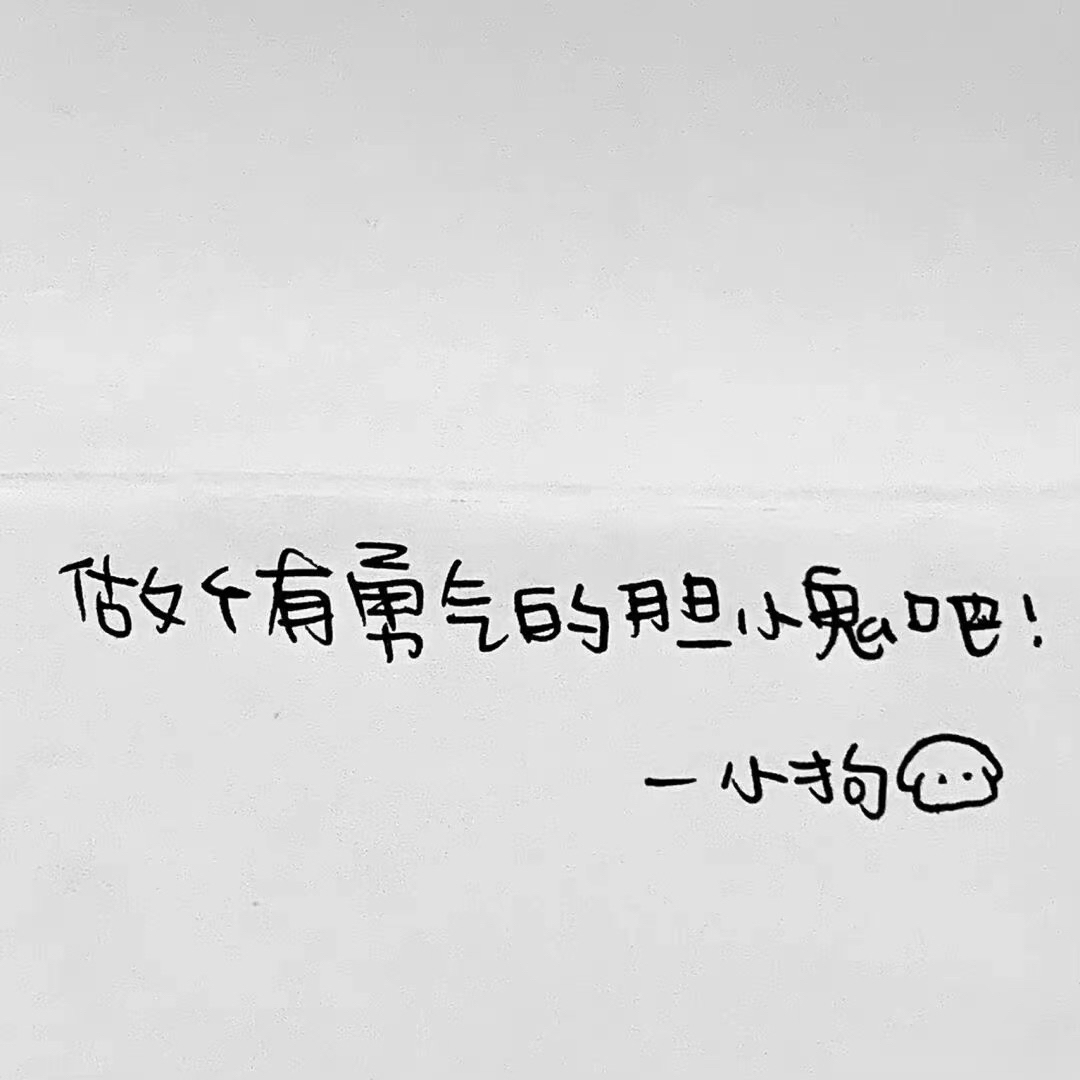 做个有勇气的胆小鬼吧!
—小狗